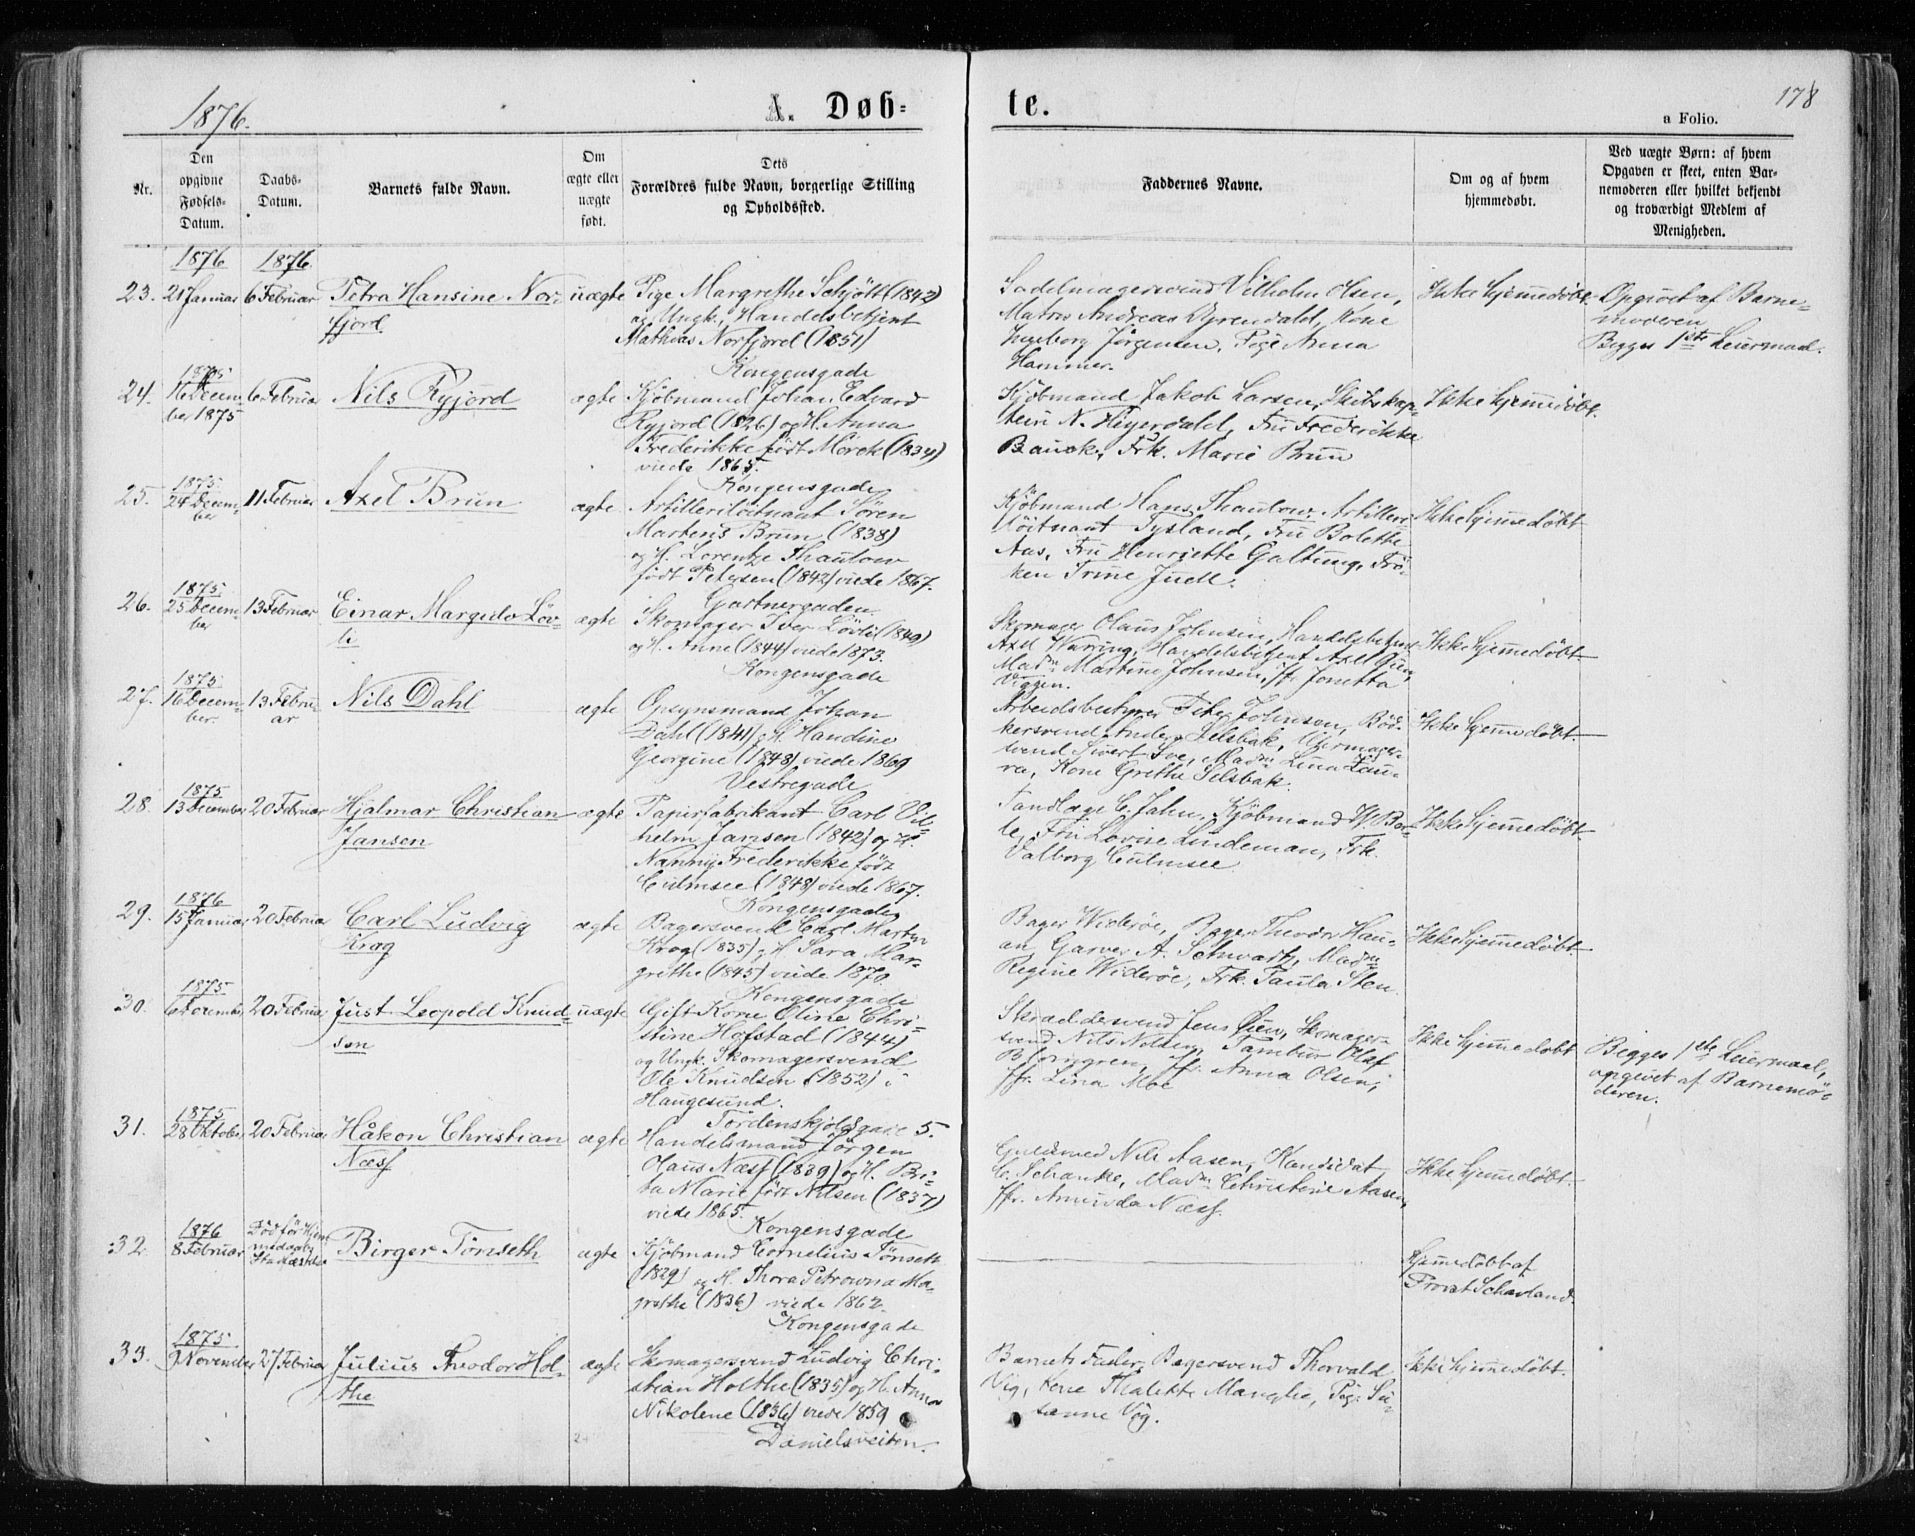 1876.
A. Døbte.
178
a Folio.
Nr.
Den opgivne Fødsels-Datum.
Daabs-Datum.
Barnets fulde Navn.
Om ægte eller uægte født.
Dets Forældres fulde Navn, borgerlige Stilling og Opholdssted.
Faddernes Navne.
Om og af hvem hjemmedøbt.
Ved uægte Børn: af hvem Opgaven er skeet, enten Barnemoderen eller hvilket bekjendt og troværdigt Medlem af Menigheden.
1876
1876.
23. 21 Januar 6 Februar Petra Hansine Nor-
fjord
uægte
Pige Margrethe Schjølt (1842)
og Ungk. Handelsbetjent
Mathias Norfjord (1851)
Kongensgade
Sadelmagersvend Vilhelm Olsen,
Matros Andreas Kone
Ingeborg Jørgensen, Pige Anna
Hammer.
Ikke hjemmedøbt.
Opgivet af Barne-
moderen
Begges 1ste Leiermaal.
1875
24. 16 Decem-
ber 1875
6 Februa
Nils Ryjord
ægte
Kjøbmand Johan Edvard
Ryjord (1826) og H. Anna
Frederikke født Mørch (1834)
viede 1865.
Kongensgade
Kjøbmand Jakob Larsen, Skibskap-
tein N. Heyerdahl, Fru Frederikke
Bauck, Frk. Marie Brun
Ikke hjemmedøbt.
1875
25. 24 Decem-
ber
11 Februar
Axel Brun
ægte
Artilleriløitnant Søren
Martens Brun (1838)
og H. Lorentze Thaulow
født Petersen (1842) viede 1867.
Gartnergaden
Kjøbmand Hans Thaulow, Artilleri-
løitnant Tysland, Fru Bolette
Aas, Fru Henriette Galtung, Frø-
ken Trine Juell.
Ikke hjemmedøbt
1875
26. 25 Decem-
ber
13 Februar
Einar Margido Løv-
li
ægte
Skomager Iver Løvli (1849)
og H. Anne (1844) viede 1873.
Kongensgade
Skomager Olaus Johnsen, Handelsbetjent
Axel Warring, Handelsbetjent Axel
Madm Martine Johnsen, Jfr Jonetta
Viggen.
Ikke hjemmedøbt
1875
27. 16 Decem-
ber.
13 Febru-
ar
Nils Dahl
ægte
Opsynsmand Johan
Dahl (1841) og H. Handine
Georgine (1848) viede 1869
Vestregade
Arbeidsbestyrer Peter Johnson, Bød-
kersvend Anders Selsbak, Uhrmager-
svend Sivert Moe, Madm Lina Lau-
ra, Kone Grethe Selsbak.
Ikke hjemmedøbt.
1875
28. 13 December 20 Februar
Hjalmar Christian
Jansen
ægte
Papirfabrikant Carl Vil-
helm Jansen (1842) og H.
Nanny Frederikke født
Culmsee (1848) viede 1867.
Kongensgade
Tandlæge C. Jahn, Kjøbmand
Fru Lovise Lindeman, Frk.
Valborg Culmsee
Ikke hjemmedøbt
1876
29. 15 Januar 20 Februar
Carl Ludvig
Krog
ægte
Bagersvend Carl Martin
Krog (1835) og H. Sara Mar-
grethe (1845) viede 1870
Kongensgade
Bager Widerøe, Bager Theodor Hau-
an, Garver A. Schwartz, Madm
Regine Widerøe, Frk. Paula Sten
Ikke hjemmedøbt.
1875
30. 6 November 20 Februar
Just Leopold Knud-
sen
uægte
Gift Kone Oline Chri-
stine Hofstad (1844)
og Ungk. Skomagersvend
Ole Knudsen (1852) i
Haugesund.
Tordenskjoldsgade 5.
Skræddersvend Jens Øien, Skomager-
svend Nils Nilsen, Tambur Olaf
Blomgren, Jfr. Anna Olsen,
Jfr. Lina Moe
Ikke hjemmedøbt
Begges 1ste Leiermaal,
opgivet af Barnemo-
deren.
1875
31. 28 Oktober 20 Februar
Håkon Christian
Næss
ægte
Handelsmand Jørgen
Olaus Næss (1839) og H. Bri-
ta Marie født Nilsen (1837)
viede 1865.
Kongensgade
Guldsmed Nils Aasen, Kandidat
C. Schanke, Madm Christine Aasen,
Jfr. Amunda Næss.
Ikke hjemmedøbt.
1876
32. 8 Februar
Død før
Birger Tønseth
ægte
Kjøbmand Cornelius Tønseth
(1829) og H. Thora Petrowna Ma-
grethe (1836) viede 1862.
Kongensgade
Hjemmedøbt af
Provst Schavland.
1875
33. 9 November 27 Februar
Julius Theodor Hol-
the
ægte
Skomagersvend Ludvig Chri-
stian Holthe (1835) og H. Anna
Nikolene (1836) viede 1859
Danielsveiten.
Barnets Fader, Bagersvend Thorvald
Vig, Kone Thalette Pige Su-
sanne Vog.
Ikke hjemmedøbt.